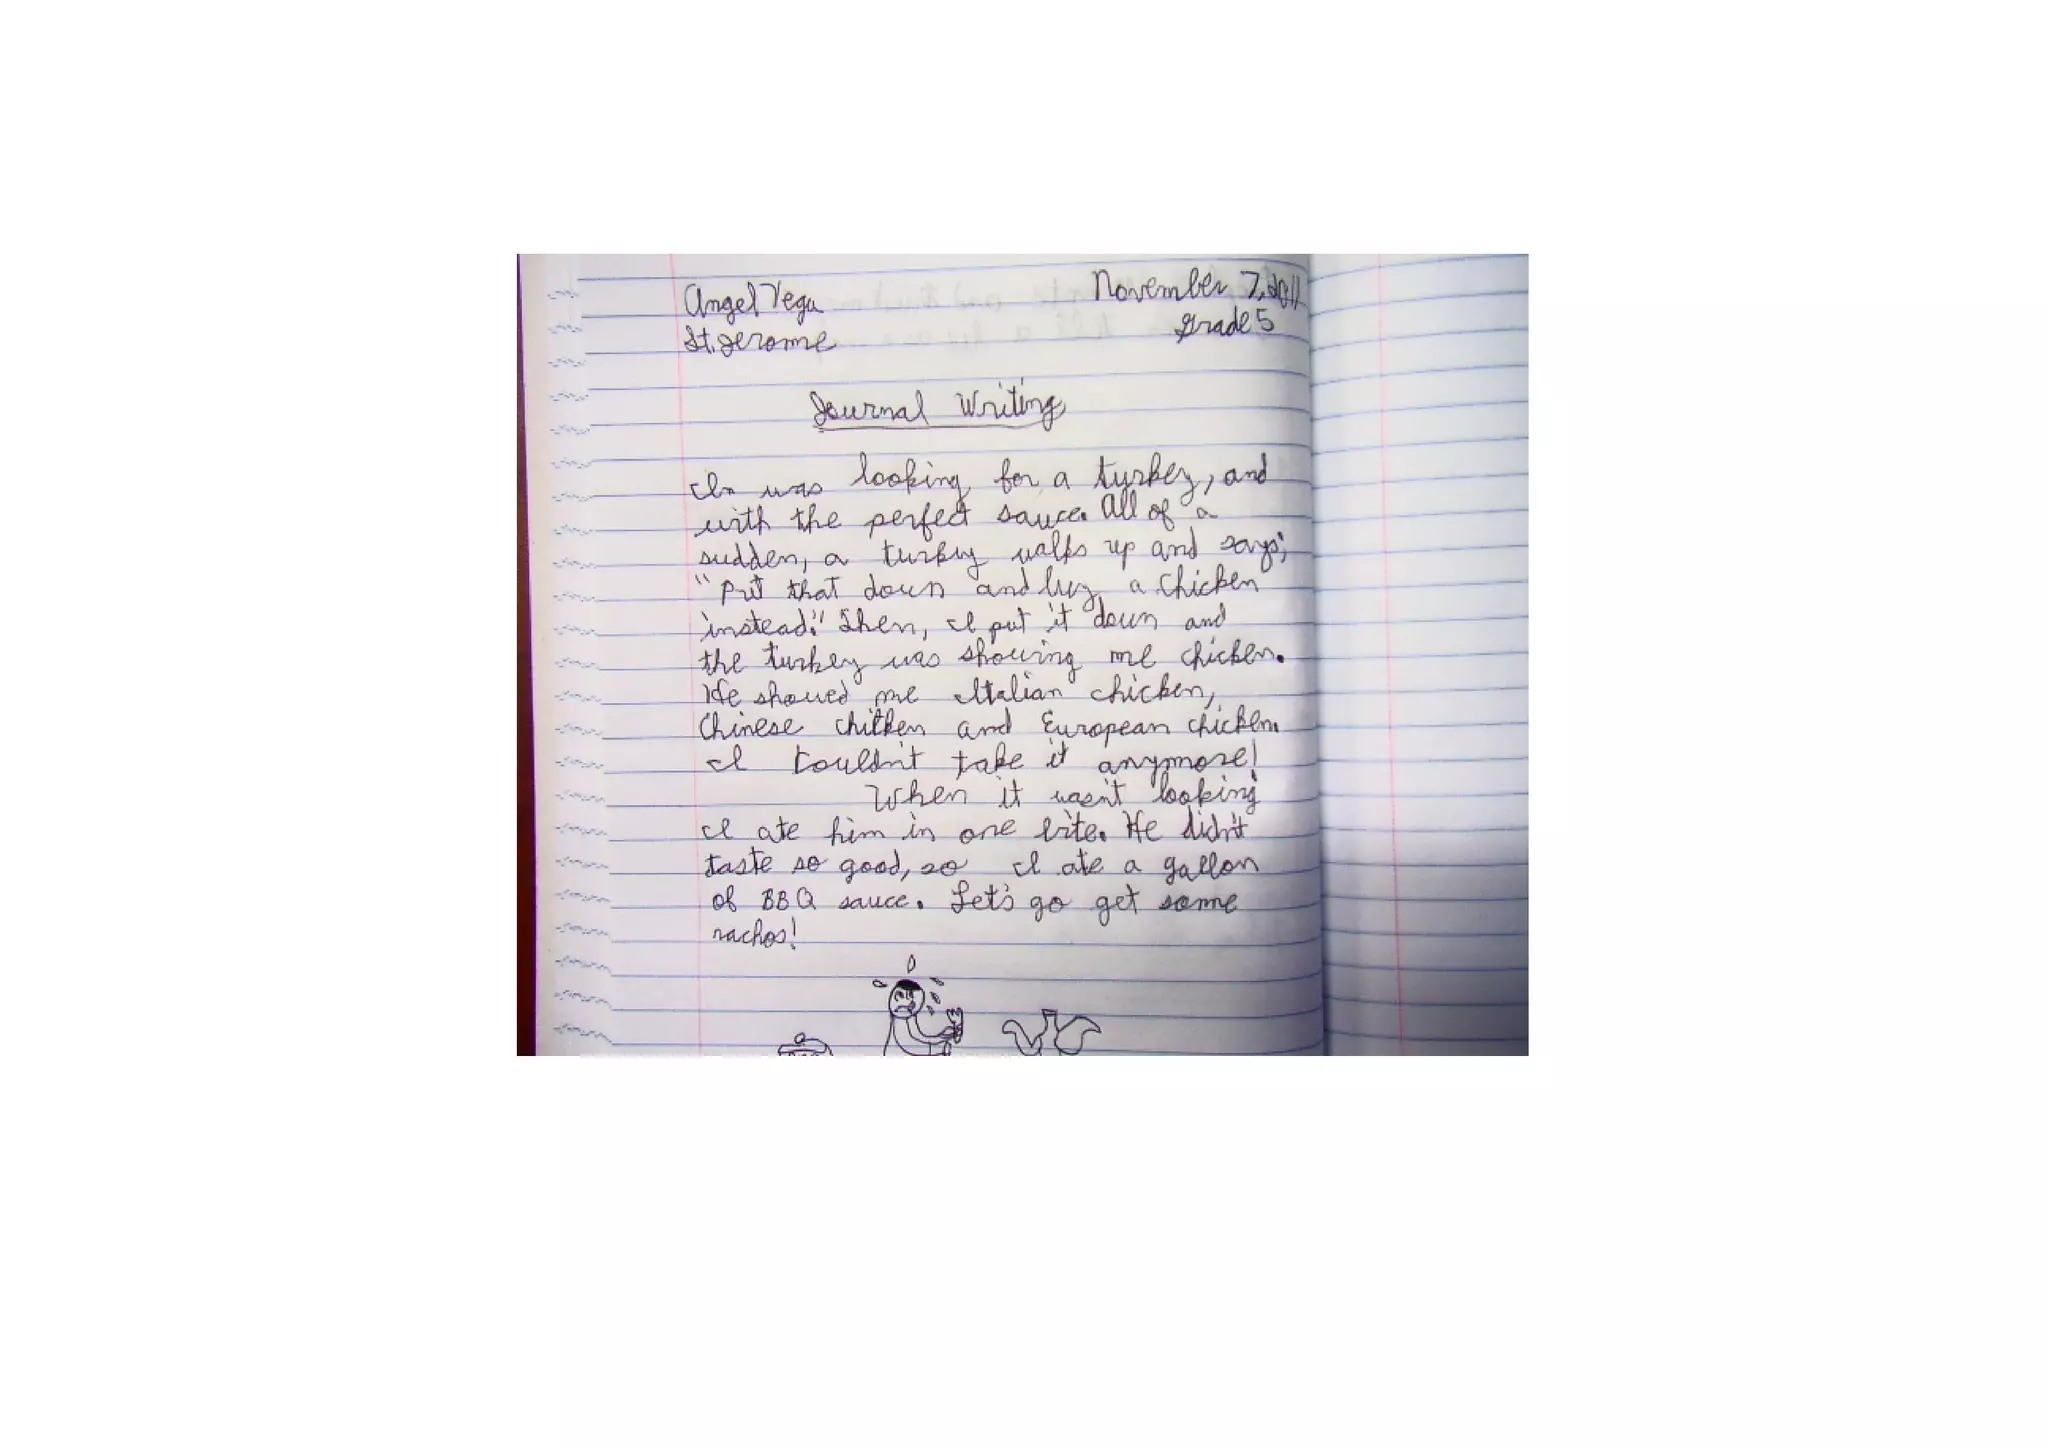 Angel Vega November 7, 2011
St. Jerome Grade 5
Journal Writing
I was looking for a turkey, and
with the perfect sauce. All of a
sudden, a turkey walks up and says;
"Put that down and buy a chicken
instead." Then, I put it down and
the turkey was showing me chicken.
He showed me Italian chicken,
Chinese chicken and European chicken.
I couldn't take it anymore!
When it wasn't looking
I ate him in one bite. He didn't
taste so good, so I ate a gallon
of BBQ sauce. Let's go get some
nachos!